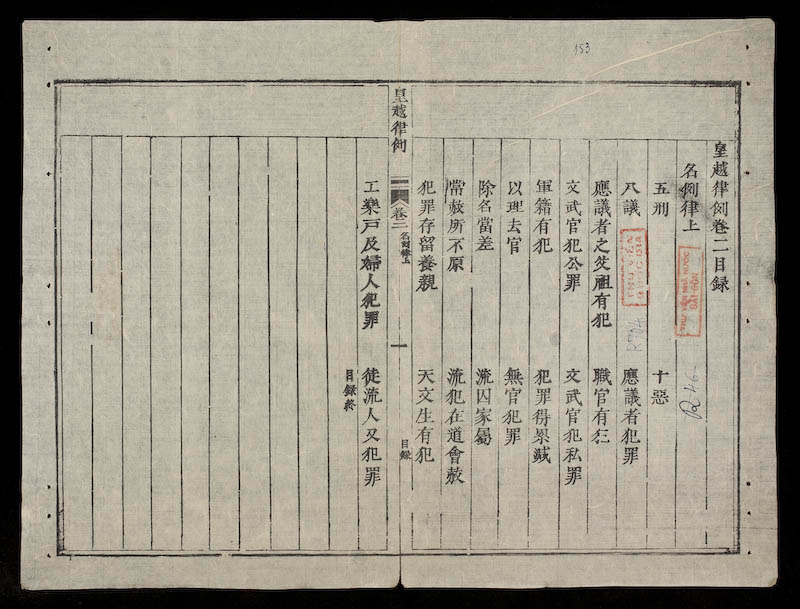 153
皇越律例卷二目録
名例律上
五刑 十惡
八議 應議者犯罪
應議者之父祖有犯 職官有犯
文武官犯公罪 文武官犯私罪
軍籍有犯 犯罪得累減
以理去官 無官犯罪
除名當差 流囚家屬
常赦所不原 流犯在道會赦
犯罪存留養親 天文生有犯
皇越律例 卷二 名例律上 一 目録
工樂戸及婦人犯罪 徒流人又犯罪
目録終